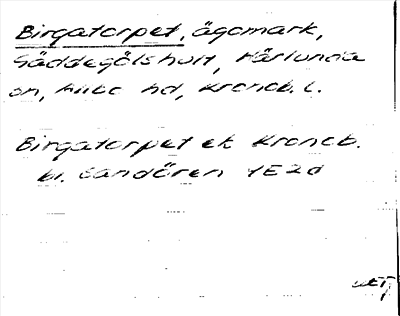 Birgatorpet, ägomark,
Gäddegölshult, Härlunda
sn, Allbo hd, Kronob. l.
Birgatorpet ek Kronob.
bl. Sandören 4E2d